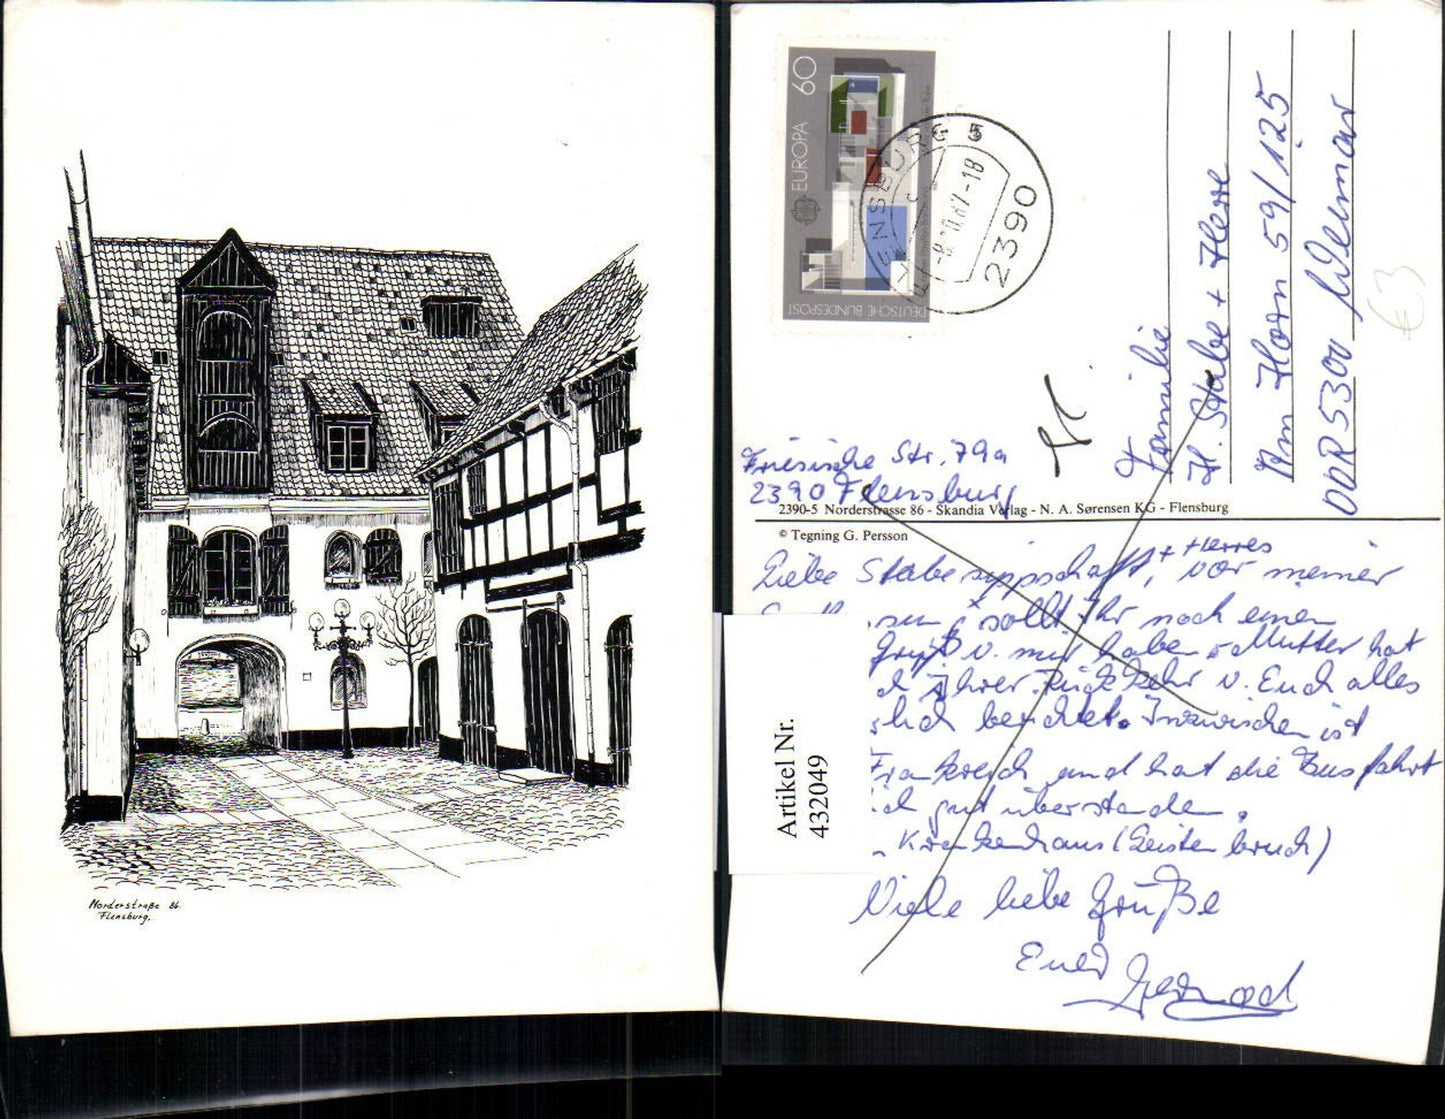 Norderstraße 86.
Flensburg.
60
EUROPA
DEUTSCHE BUNDESPOST
FLENSBURG 5
-8.10.87-18
2390
Familie
H. Stabe + Herre
Am Horn 59/125
DDR 5300 Weimar
€3
Friesische Str. 79a
2390 Flensburg
2390-5 Norderstrasse 86 - Skandia Verlag - N. A. Sørensen KG - Flensburg
© Tegning G. Persson
Liebe Stabesippschaft, + Herres vor meiner
sollt Ihr noch einen
Gruß v. mir haben. Mutter hat
Ihrer Rückkehr v. Euch alles
berichtet. Inzwischen ist
Frankreich und hat die Busfahrt
gut überstanden.
Krankenhaus (Leistenbruch)
Viele liebe Grüße
Euer
Artikel Nr.
432049